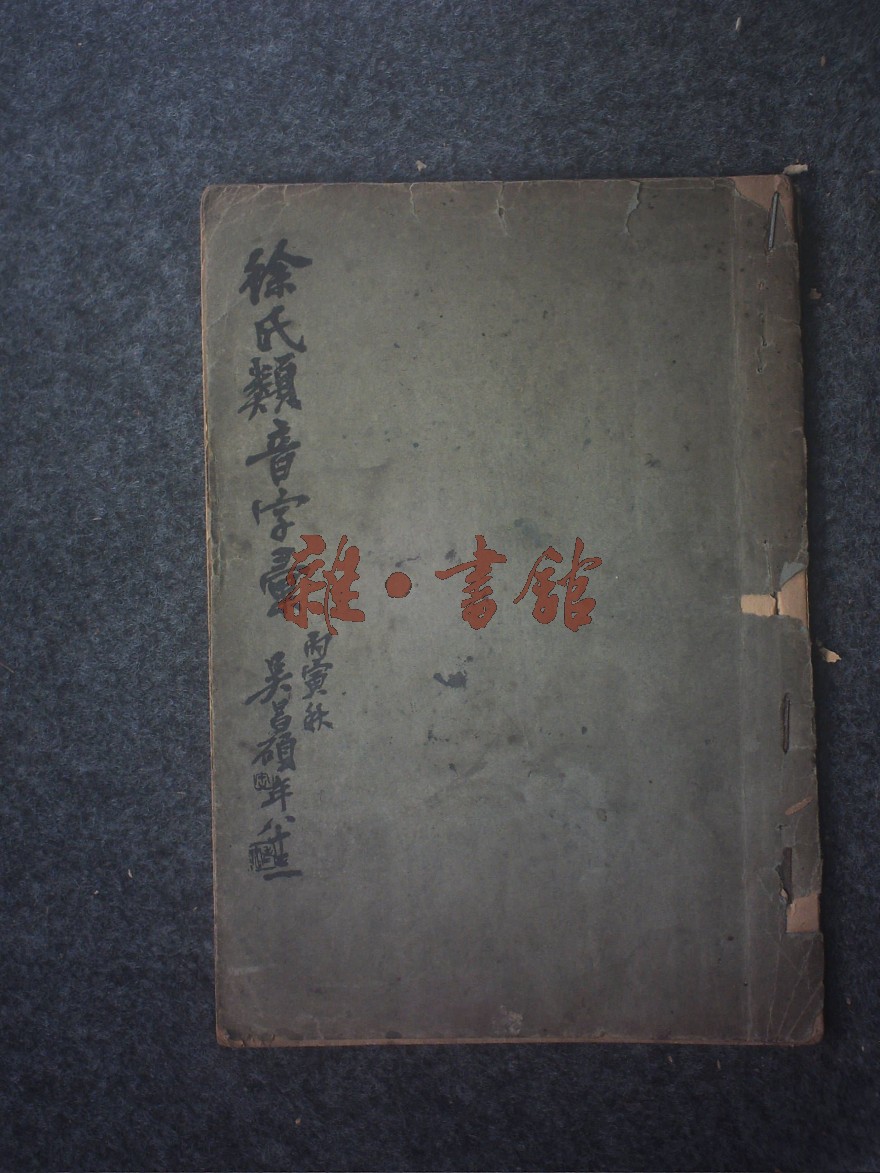 徐氏類音字彙
丙寅秋
吳昌碩年八十三
雜·書舘